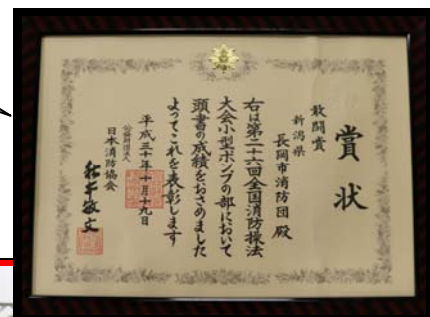 賞状
敢闘賞
新潟県
長岡市消防団殿
右は第二十六回全国消防操法
大会小型ポンプの部において
頭書の成績をおさめました
よってこれを表彰します
平成三十年十月十九日
公益財団法人
日本消防協会
秋本敏文